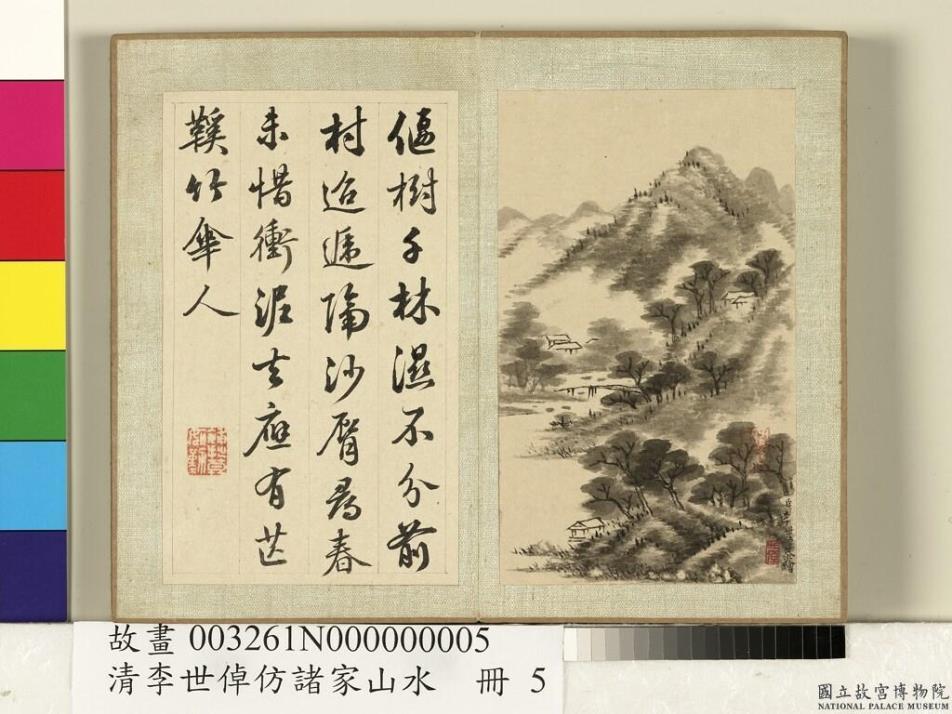 偃樹千林濕不分前
村迢遞隔沙脣尋春
未惜衝泥去應有芒
鞵竹傘人
故畫 003261N000000005
清李世倬仿諸家山水 冊 5
國立故宮博物院
NATIONAL PALACE MUSEUM